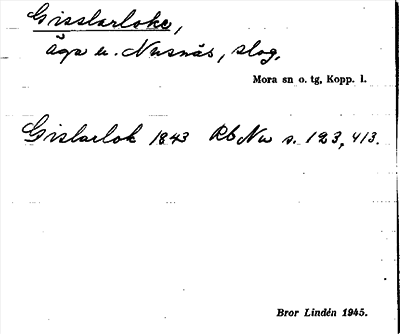 Gisslarloke,
äga u. Nusnäs, slog.
Mora sn o. tg, Kopp. l.
Gislarlok 1843 Rb Nu s. 123, 413.
Bror Lindén 1945.